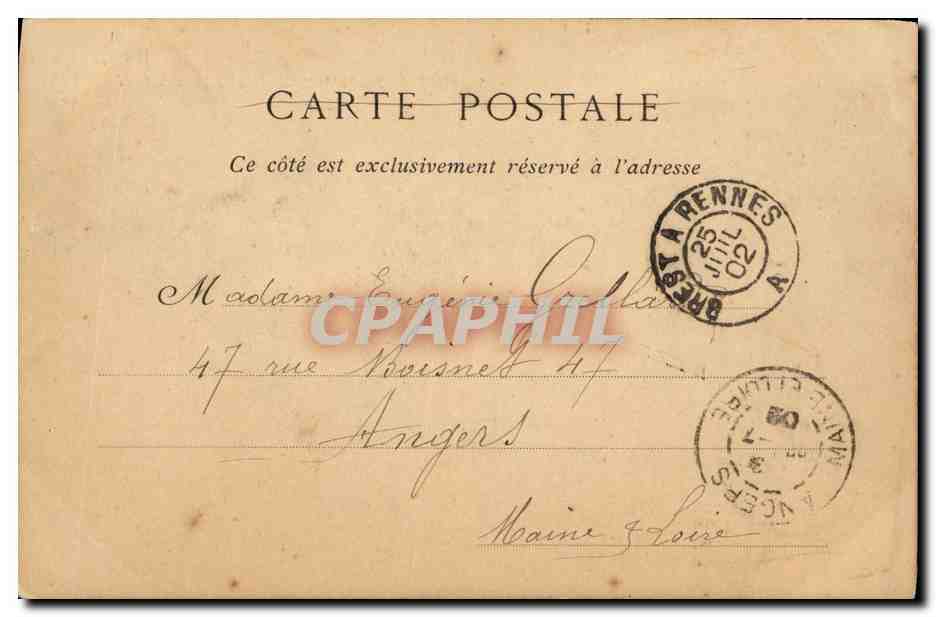 CARTE POSTALE
Ce côté est exclusivement réservé à l'adresse
BREST A RENNES
25
JUIL
02
A
Madame Eugénie
CPAPHIL
47 rue Boisnet 47
Angers
Maine & Loire
ANGERS
MAINE-ET-LOIRE
02